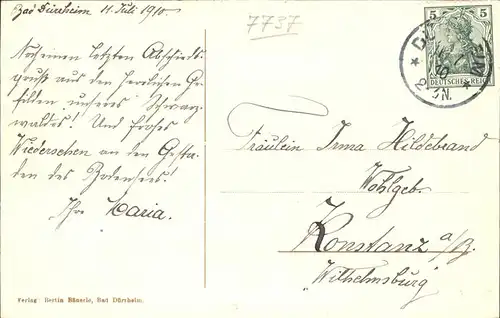 Bad Dürrheim 11. Juli 1910.
7737
Noch einen letzten Abschieds-
gruß aus den herrlichen Ge-
filden unseres Schwarz-
waldes! Und frohes
Wiedersehen an den Gesta-
den des Bodensees!
Ihre Maria.
5 5
DEUTSCHES REICH
Fräulein Irma Hildebrand
Wohlgeb.
Konstanz a/B.
"Wilhelmsburg"
Verlag Bertin Bäuerle, Bad Dürrheim.